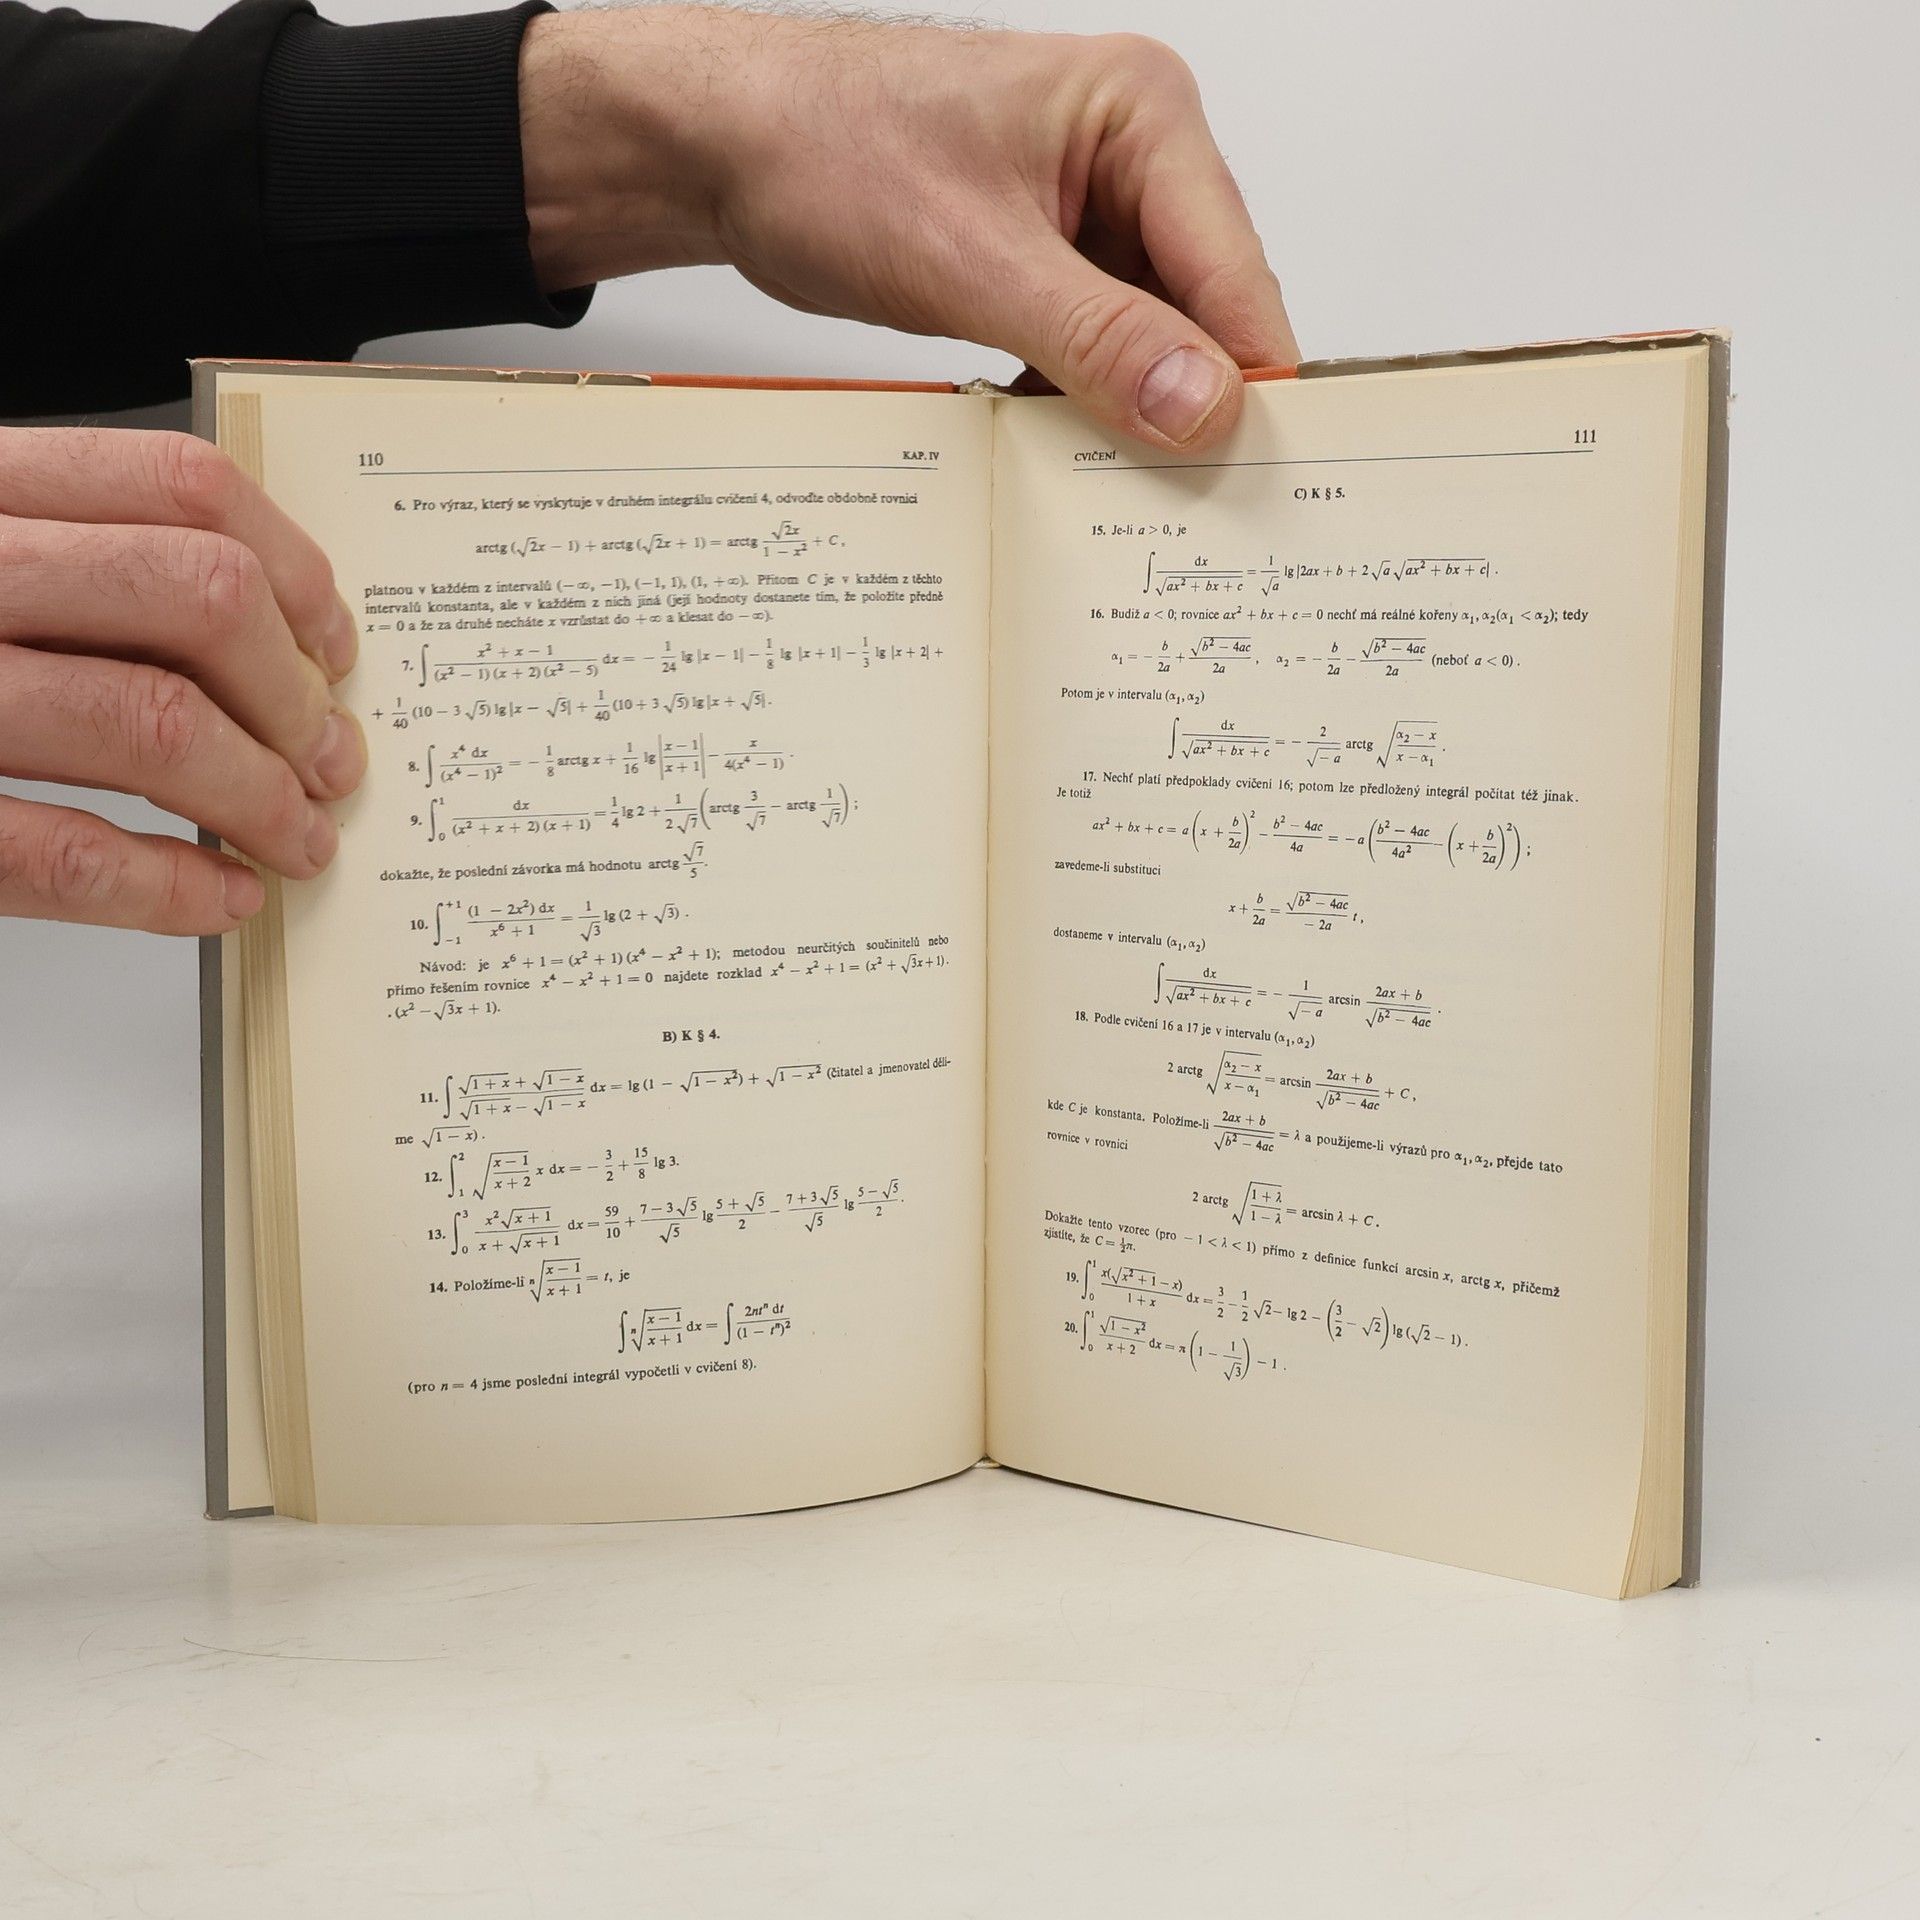 110 KAP. IV
6. Pro výraz, který se vyskytuje v druhém integrálu cvičení 4, odvoďte obdobně rovnici
arctg (√2x − 1) + arctg (√2x + 1) = arctg √2x / (1 − x²) + C,
platnou v každém z intervalů (−∞, −1), (−1, 1), (1, +∞). Přitom C je v každém z těchto
intervalů konstanta, ale v každém z nich jiná (její hodnoty dostanete tím, že položíte předně
x = 0 a že za druhé necháte x vzrůstat do +∞ a klesat do −∞).
7. ∫ (x² + x − 1) / ((x² − 1)(x + 2)(x² − 5)) dx = − 1/24 lg |x − 1| − 1/8 lg |x + 1| − 1/3 lg |x + 2| +
+ 1/40 (10 − 3√5) lg |x − √5| + 1/40 (10 + 3√5) lg |x + √5|.
8. ∫ x⁴ dx / (x⁴ − 1)² = − 1/8 arctg x + 1/16 lg |(x − 1)/(x + 1)| − x / (4(x⁴ − 1)) .
9. ∫₀¹ dx / ((x² + x + 2)(x + 1)) = 1/4 lg 2 + 1/(2√7) (arctg 3/√7 − arctg 1/√7) ;
dokažte, že poslední závorka má hodnotu arctg √7/5.
10. ∫₋₁⁺¹ (1 − 2x²) dx / (x⁶ + 1) = 1/√3 lg (2 + √3) .
Návod: je x⁶ + 1 = (x² + 1)(x⁴ − x² + 1); metodou neurčitých součinitelů nebo
přímo řešením rovnice x⁴ − x² + 1 = 0 najdete rozklad x⁴ − x² + 1 = (x² + √3x + 1).
. (x² − √3x + 1).
B) K § 4.
11. ∫ (√(1 + x) + √(1 − x)) / (√(1 + x) − √(1 − x)) dx = lg (1 − √(1 − x²)) + √(1 − x²) (čitatel a jmenovatel děli-
me √(1 − x) .
12. ∫₁² √((x − 1)/(x + 2)) x dx = − 3/2 + 15/8 lg 3.
13. ∫₀³ x²√(x + 1) / (x + √(x + 1)) dx = 59/10 + (7 − 3√5)/√5 lg (5 + √5)/2 − (7 + 3√5)/√5 lg (5 − √5)/2 .
14. Položíme-li ⁿ√((x − 1)/(x + 1)) = t, je
∫ ⁿ√((x − 1)/(x + 1)) dx = ∫ 2ntⁿ dt / (1 − tⁿ)²
(pro n = 4 jsme poslední integrál vypočetli v cvičení 8).
CVIČENÍ 111
C) K § 5.
15. Je-li a > 0, je
∫ dx / √(ax² + bx + c) = 1/√a lg |2ax + b + 2√a √(ax² + bx + c)| .
16. Budiž a < 0; rovnice ax² + bx + c = 0 nechť má reálné kořeny α₁, α₂ (α₁ < α₂); tedy
α₁ = − b/2a + √(b² − 4ac)/2a , α₂ = − b/2a − √(b² − 4ac)/2a (neboť a < 0) .
Potom je v intervalu (α₁, α₂)
∫ dx / √(ax² + bx + c) = − 2/√−a arctg √((α₂ − x)/(x − α₁)) .
17. Nechť platí předpoklady cvičení 16; potom lze předložený integrál počítat též jinak.
Je totiž
ax² + bx + c = a (x + b/2a)² − (b² − 4ac)/4a = −a ((b² − 4ac)/4a² − (x + b/2a)²) ;
zavedeme-li substituci
x + b/2a = √(b² − 4ac)/−2a t ,
dostaneme v intervalu (α₁, α₂)
∫ dx / √(ax² + bx + c) = − 1/√−a arcsin (2ax + b)/√(b² − 4ac) .
18. Podle cvičení 16 a 17 je v intervalu (α₁, α₂)
2 arctg √((α₂ − x)/(x − α₁)) = arcsin (2ax + b)/√(b² − 4ac) + C ,
kde C je konstanta. Položíme-li (2ax + b)/√(b² − 4ac) = λ a použijeme-li výrazů pro α₁, α₂, přejde tato
rovnice v rovnici
2 arctg √((1 + λ)/(1 − λ)) = arcsin λ + C .
Dokažte tento vzorec (pro −1 < λ < 1) přímo z definice funkcí arcsin x, arctg x, přičemž
zjistíte, že C = ½π.
19. ∫₀¹ x(√(x² + 1) − x) / (1 + x) dx = 3/2 − 1/2 √2 − lg 2 − (3/2 − √2) lg (√2 − 1) .
20. ∫₀¹ √(1 − x²) / (x + 2) dx = π (1 − 1/√3) − 1 .